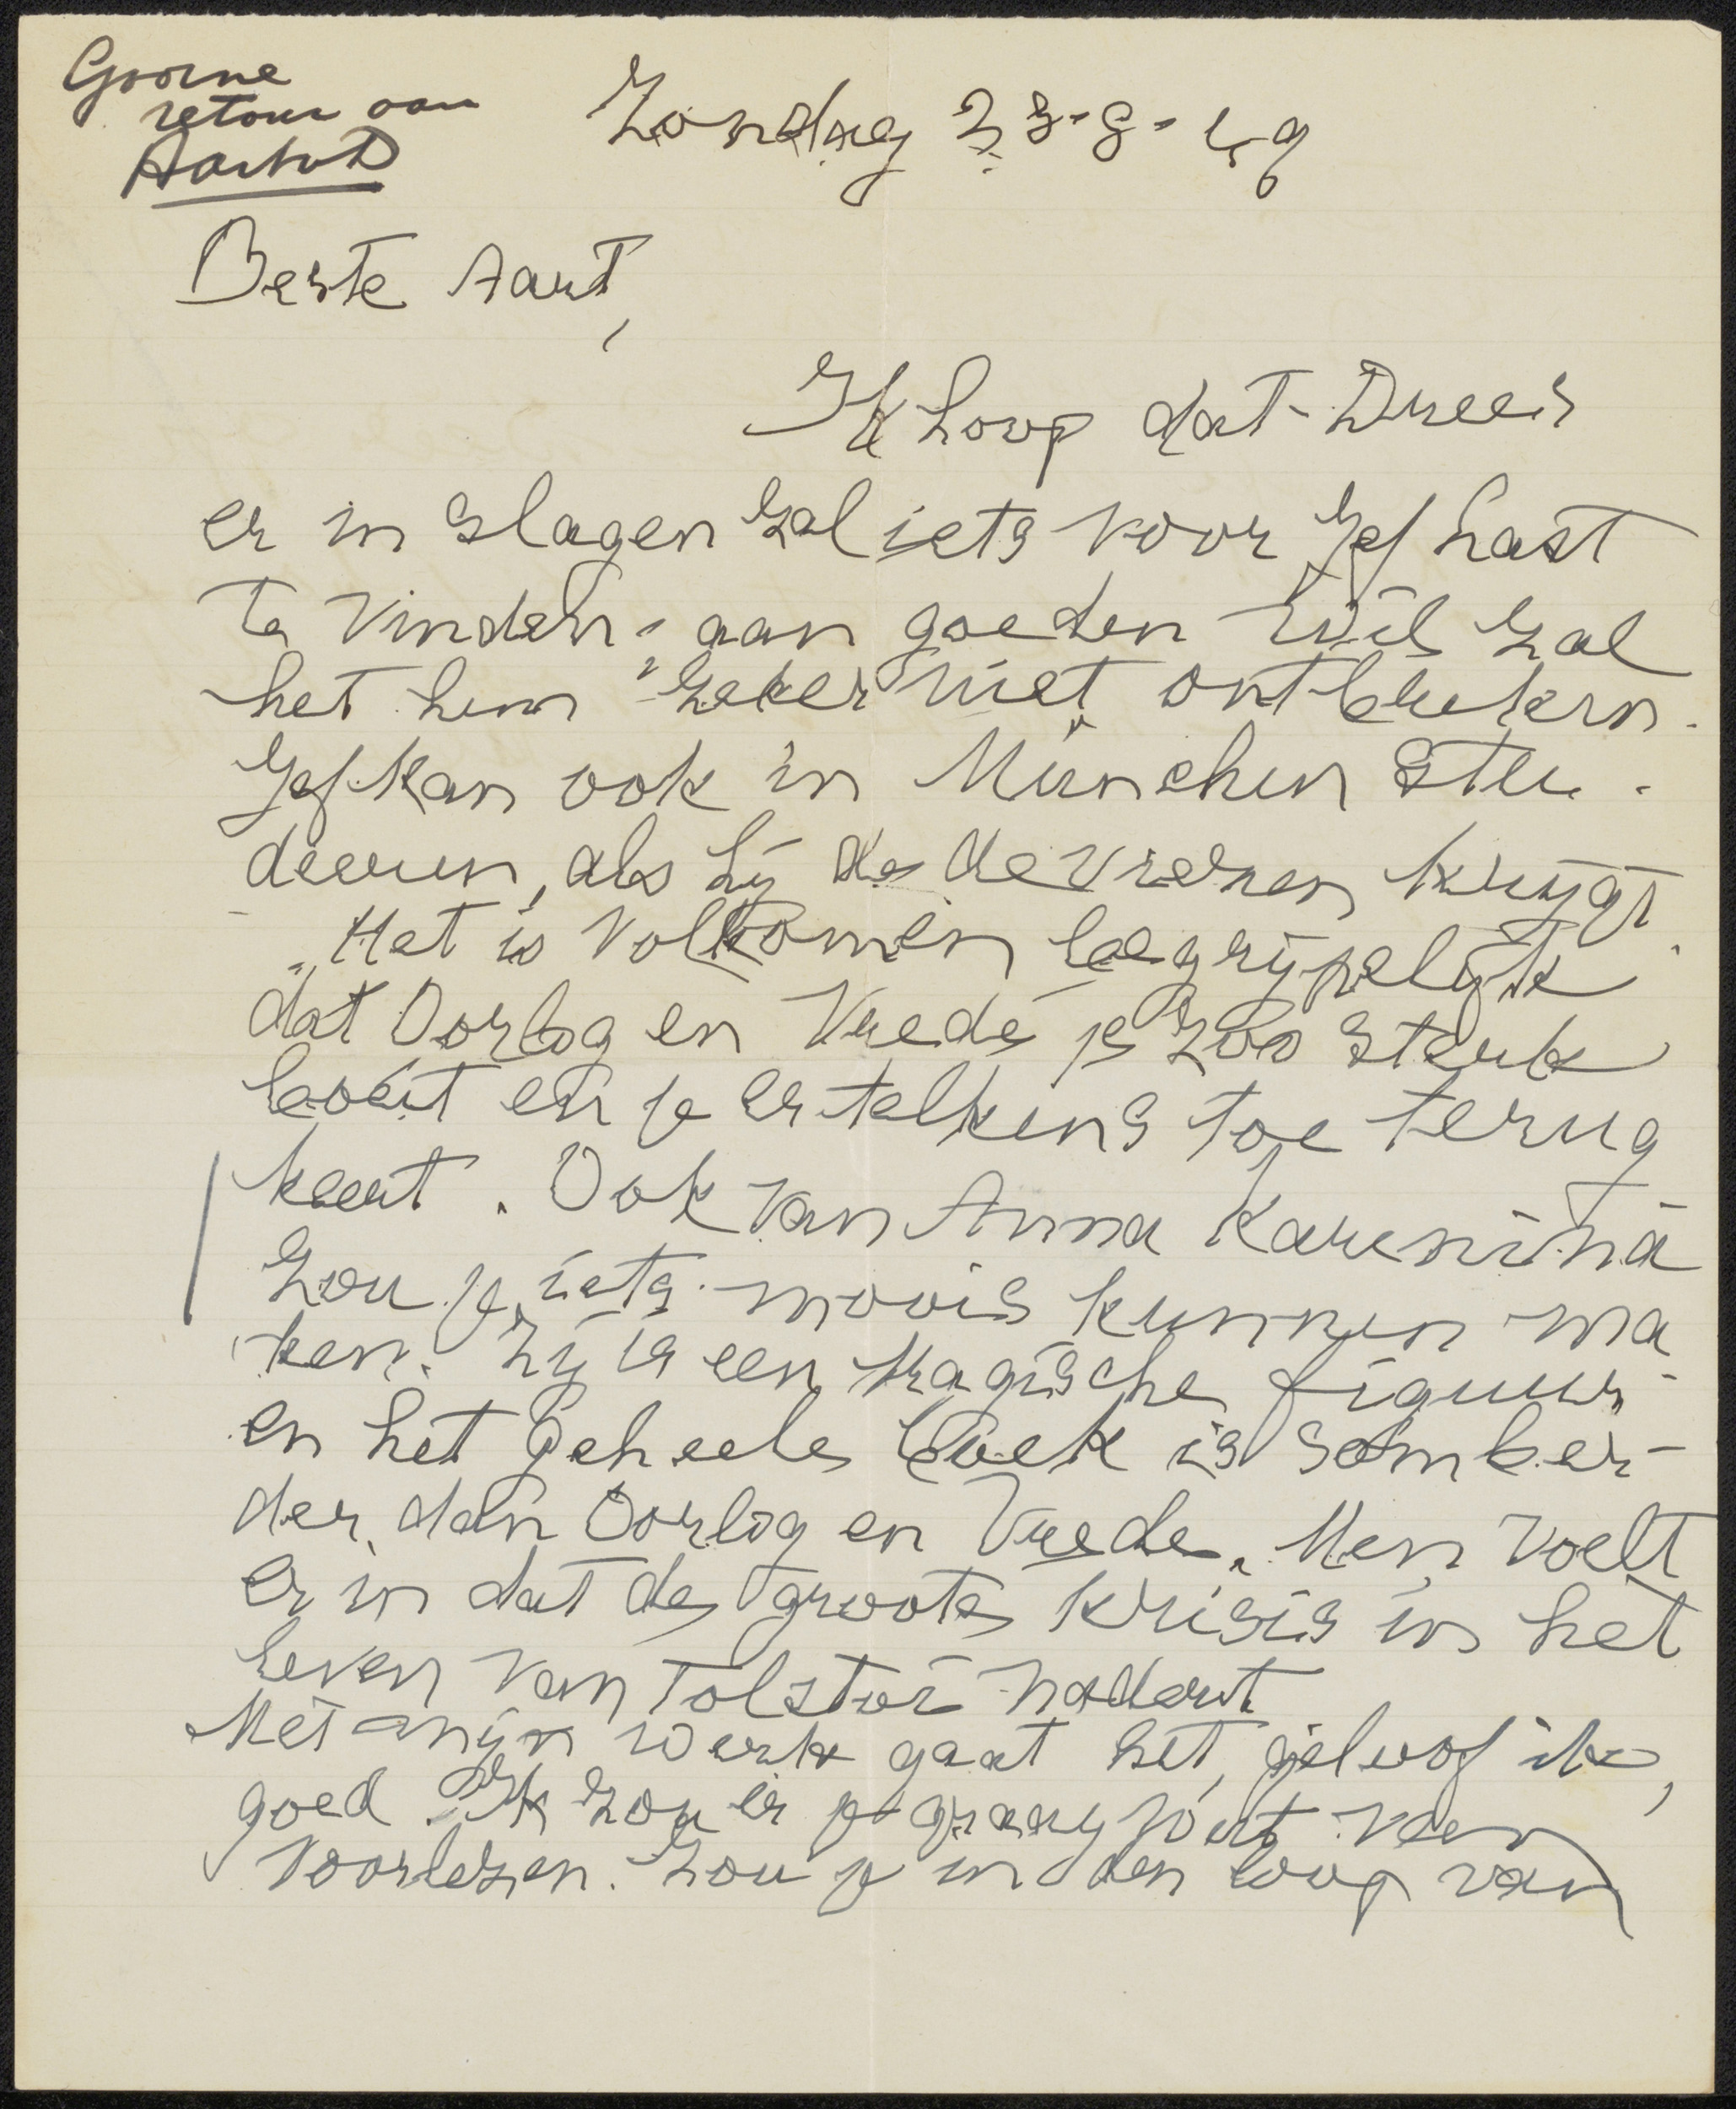 Gorne
retour aan
AavhD
Zondag 28-8-49
Beste Aart,
Ik hoop dat Drees
er in slagen zal iets voor Jef Last
te vinden, aan goeden wil zal
het hem zeker niet ontbreken.
Jef kan ook in München stu-
deeren, als hij de devrezen krijgt.
Het is volkomen begrijpelijk
dat Oorlog en Vrede je zoo sterk
boeit en je er telkens toe terug
keert. Ook van Anna Karenina
zou je iets moois kunnen ma
ken. Zij is een tragische figuur
en het geheele boek is somber-
der dan Oorlog en Vrede. Men voelt
er in dat de groote krisis in het
leven van Tolstoï nadert
Met mijn werk gaat het, geloof ik,
goed. Ik zou er je graag iets van
voorlezen. Zou je in den loop van